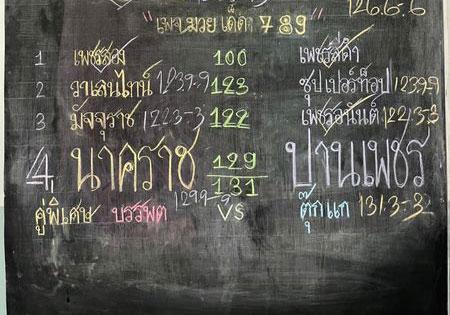 126.6.6
"เพจ มวย เด็ดๆ 789"
1 เพชรสอง 100 เพชรสีดำ
2 วาเลนไทน์ 1239-9 123 ซุปเปอร์ท็อป 1239-9
3 มัจจุราช 1223-3 122 เพชรอนันต์ 1223-3
4 นาคราช 129 131 ปานเพชร
คู่พิเศษ บรรพต 1299-9 VS ตุ๊กแก 1313-3